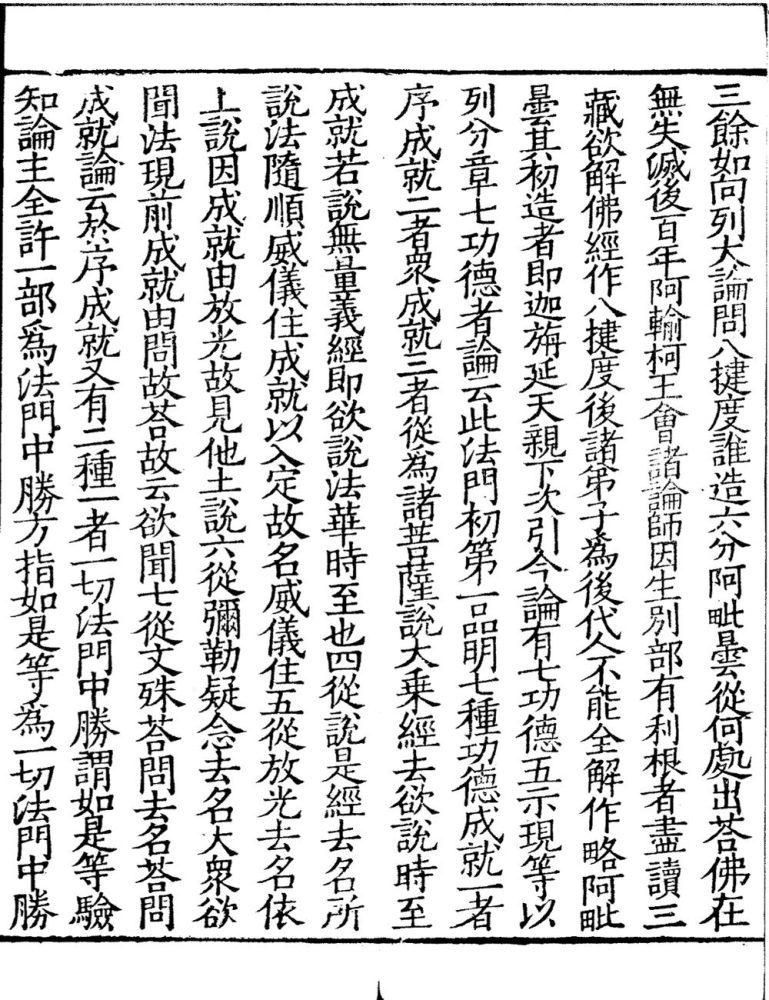 三餘如向列大論問八揵度誰造六分阿毗曇從何處出荅佛在
無失滅後百年阿輸柯王會諸論師因生別部有利根者盡讀三
藏欲解佛經作八揵度後諸弟子為後代人不能全解作略阿毗
曇其初造者即迦旃延天親下次引今論有七功德五示現等以
列分章七功德者論云此法門初第一品明七種功德成就一者
序成就二者衆成就三者從為諸菩薩說大乗經去欲說時至
成就若說無量義經即欲說法華時至也四從說是經去名所
說法隨順威儀住成就以入定故名威儀住五從放光去名依
上說因成就由放光故見他土說六從彌勒疑念去名大衆欲
聞法現前成就由問故荅故云欲聞七從文殊荅問去名荅問
成就論云於序成就又有二種一者一切法門中勝謂如是等驗
知論主全許一部為法門中勝方指如是等為一切法門中勝